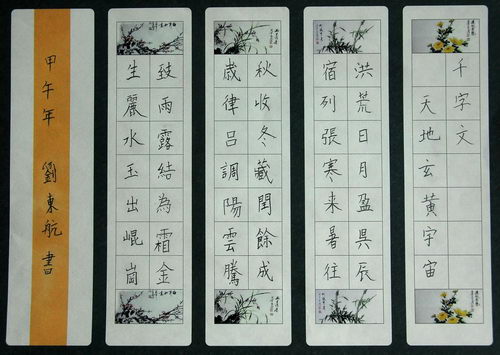 千字文
天地玄黃宇宙
洪荒日月盈昃辰
宿列張寒来暑往
秋收冬藏閏餘成
歳律呂調陽雲騰
致雨露結為霜金
生麗水玉出崐崗
甲午年 劉東航書